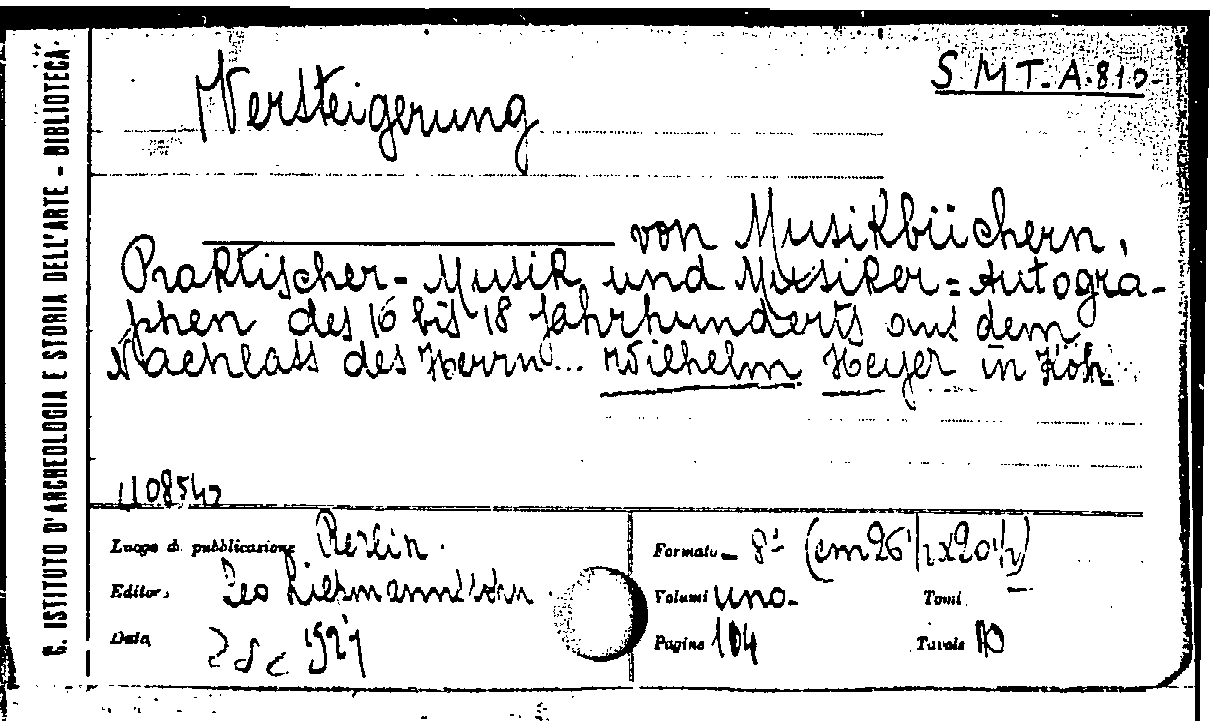 S M T. A. 810
Versteigerung
von Musikbüchern,
Praktischer-Musik und Musiker=Autogra-
phen des 16 bis 18 Jahrhunderts aus dem
Nachlass des Herrn... Wilhelm Heyer in Köln
Luogo di pubblicazione Berlin.
Editore Leo Liepmannssohn.
Data 1927
Formato 8° (cm 26 1/2 x 20 1/2)
Volumi uno-
Tomi —
Pagine 104
Tavole
C. ISTITUTO D'ARCHEOLOGIA E STORIA DELL'ARTE - BIBLIOTECA-